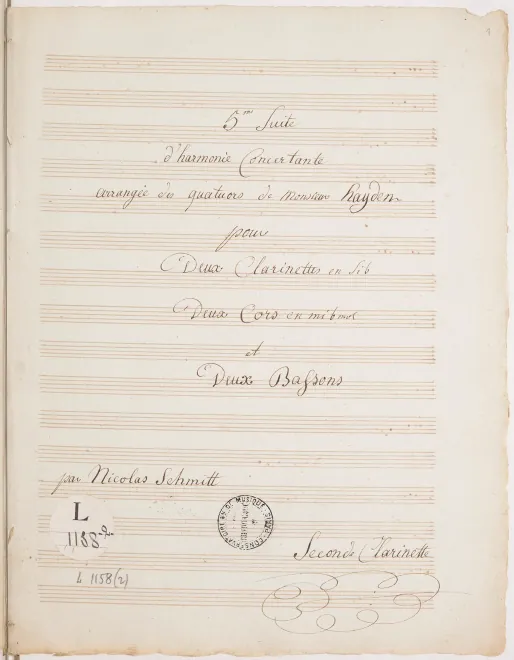 5me Suite
d'harmonie Concertante
arrangée des quatuors de Monsieur hayden
pour
Deux Clarinettes en sib
Deux Cors en mi b mol
et
Deux Bassons
par Nicolas Schmitt
L
1158-2
CONSERVATOIRE DE MUSIQUE
L 1158(2)
Seconde Clarinette